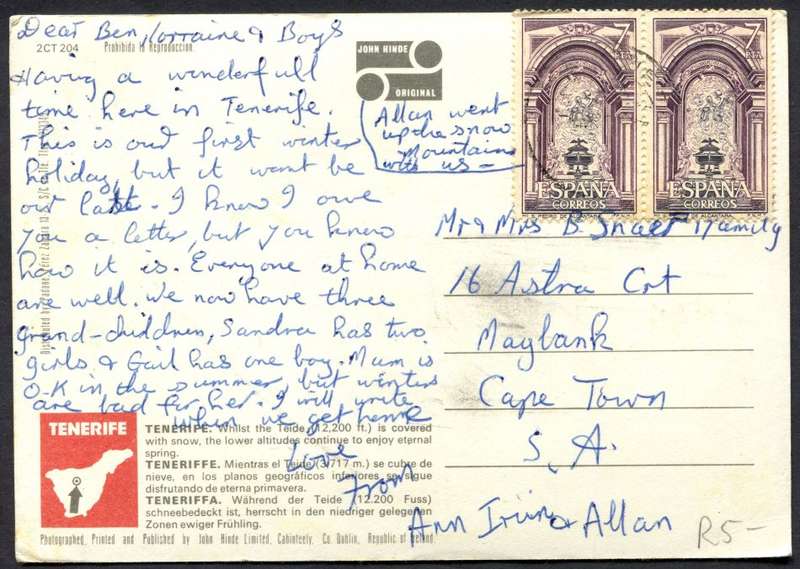 Dear Ben, Lorraine & Boys
2CT 204
Prohibida la Reproduccion.
Having a wonderfull
time here in Tenerife.
This is our first winter
holiday, but it wont be
our last. I know I owe
you a letter, but you know
how it is. Everyone at home
are well. We now have three
grand-children, Sandra has two
girls & Gail has one boy. Mum is
O.K in the summer, but winters
are bad for her. I will write
when we get home
Love
From
Ann Irvin & Allan
Allan went
up the snow
Mountains
with us —
JOHN HINDE
ORIGINAL
7
PTA
ESPAÑA
CORREOS
7
PTA
ESPAÑA
CORREOS
Mr & Mrs B. & family
16 Astra Crt
Maybank
Cape Town
S. A.
R5-
Distributed by
TENERIFE
TENERIFE. Whilst the Teide (12,200 ft.) is covered
with snow, the lower altitudes continue to enjoy eternal
spring.
TENERIFFE. Mientras el Teide (3,717 m.) se cubre de
nieve, en los planos geográficos inferiores se sigue
disfrutando de eterna primavera.
TENERIFFA. Während der Teide (12,200 Fuss)
schneebedeckt ist, herrscht in den niedriger gelegenen
Zonen ewiger Frühling.
Photographed, Printed and Published by John Hinde Limited, Cabinteely, Co. Dublin, Republic of Ireland.